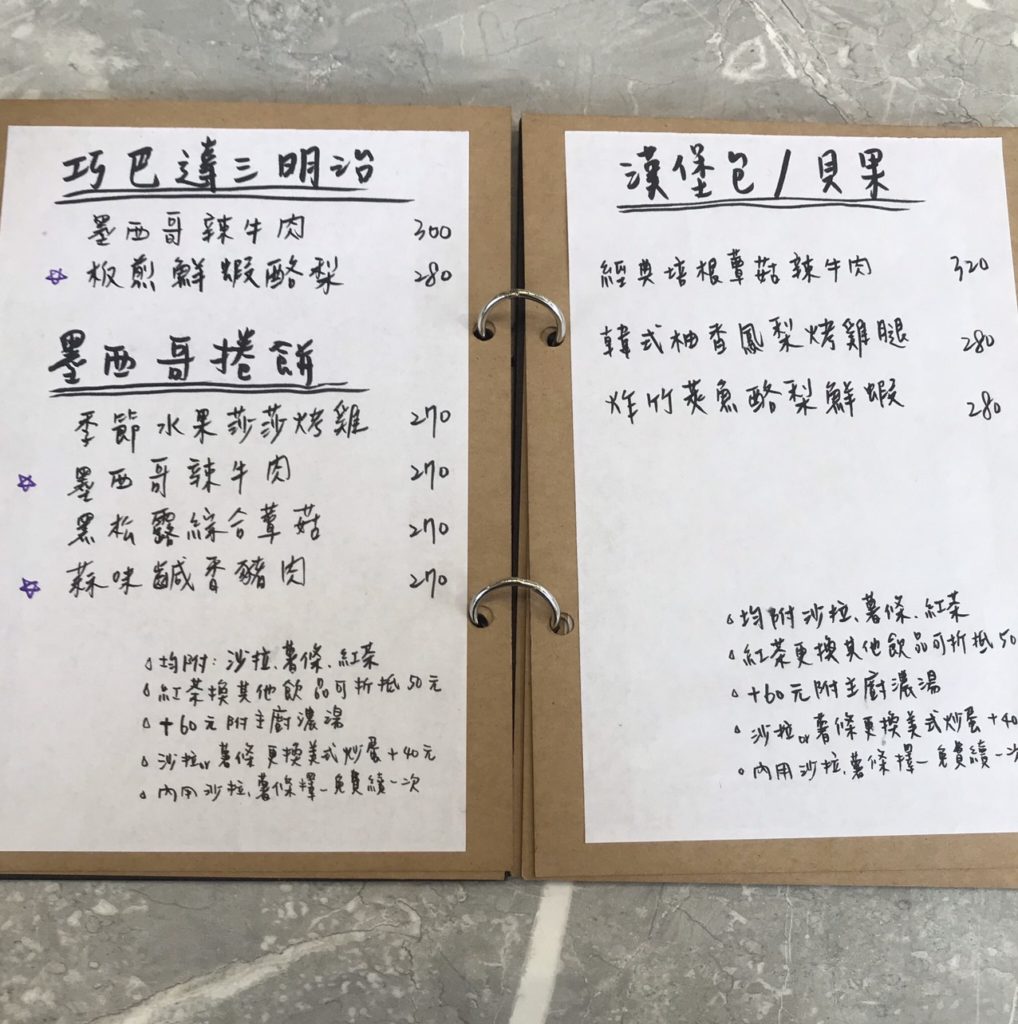 巧巴達三明治
墨西哥辣牛肉 300
☆ 板煎鮮蝦酪梨 280
墨西哥捲餅
季節水果莎莎烤雞 270
☆ 墨西哥辣牛肉 270
黑松露綜合蕈菇 270
☆ 蒜味鹹香豬肉 270
均附:沙拉、薯條、紅茶
紅茶換其他飲品可折抵50元
+60元附主廚濃湯
沙拉or薯條更換美式炒蛋+40元
內用沙拉、薯條擇一免費續一次
漢堡包/貝果
經典培根蕈菇辣牛肉 320
韓式柚香鳳梨烤雞腿 280
炸竹莢魚酪梨鮮蝦 280
均附沙拉、薯條、紅茶
紅茶更換其他飲品可折抵50
+60元附主廚濃湯
沙拉or薯條更換美式炒蛋+40
內用沙拉、薯條擇一免費續一次